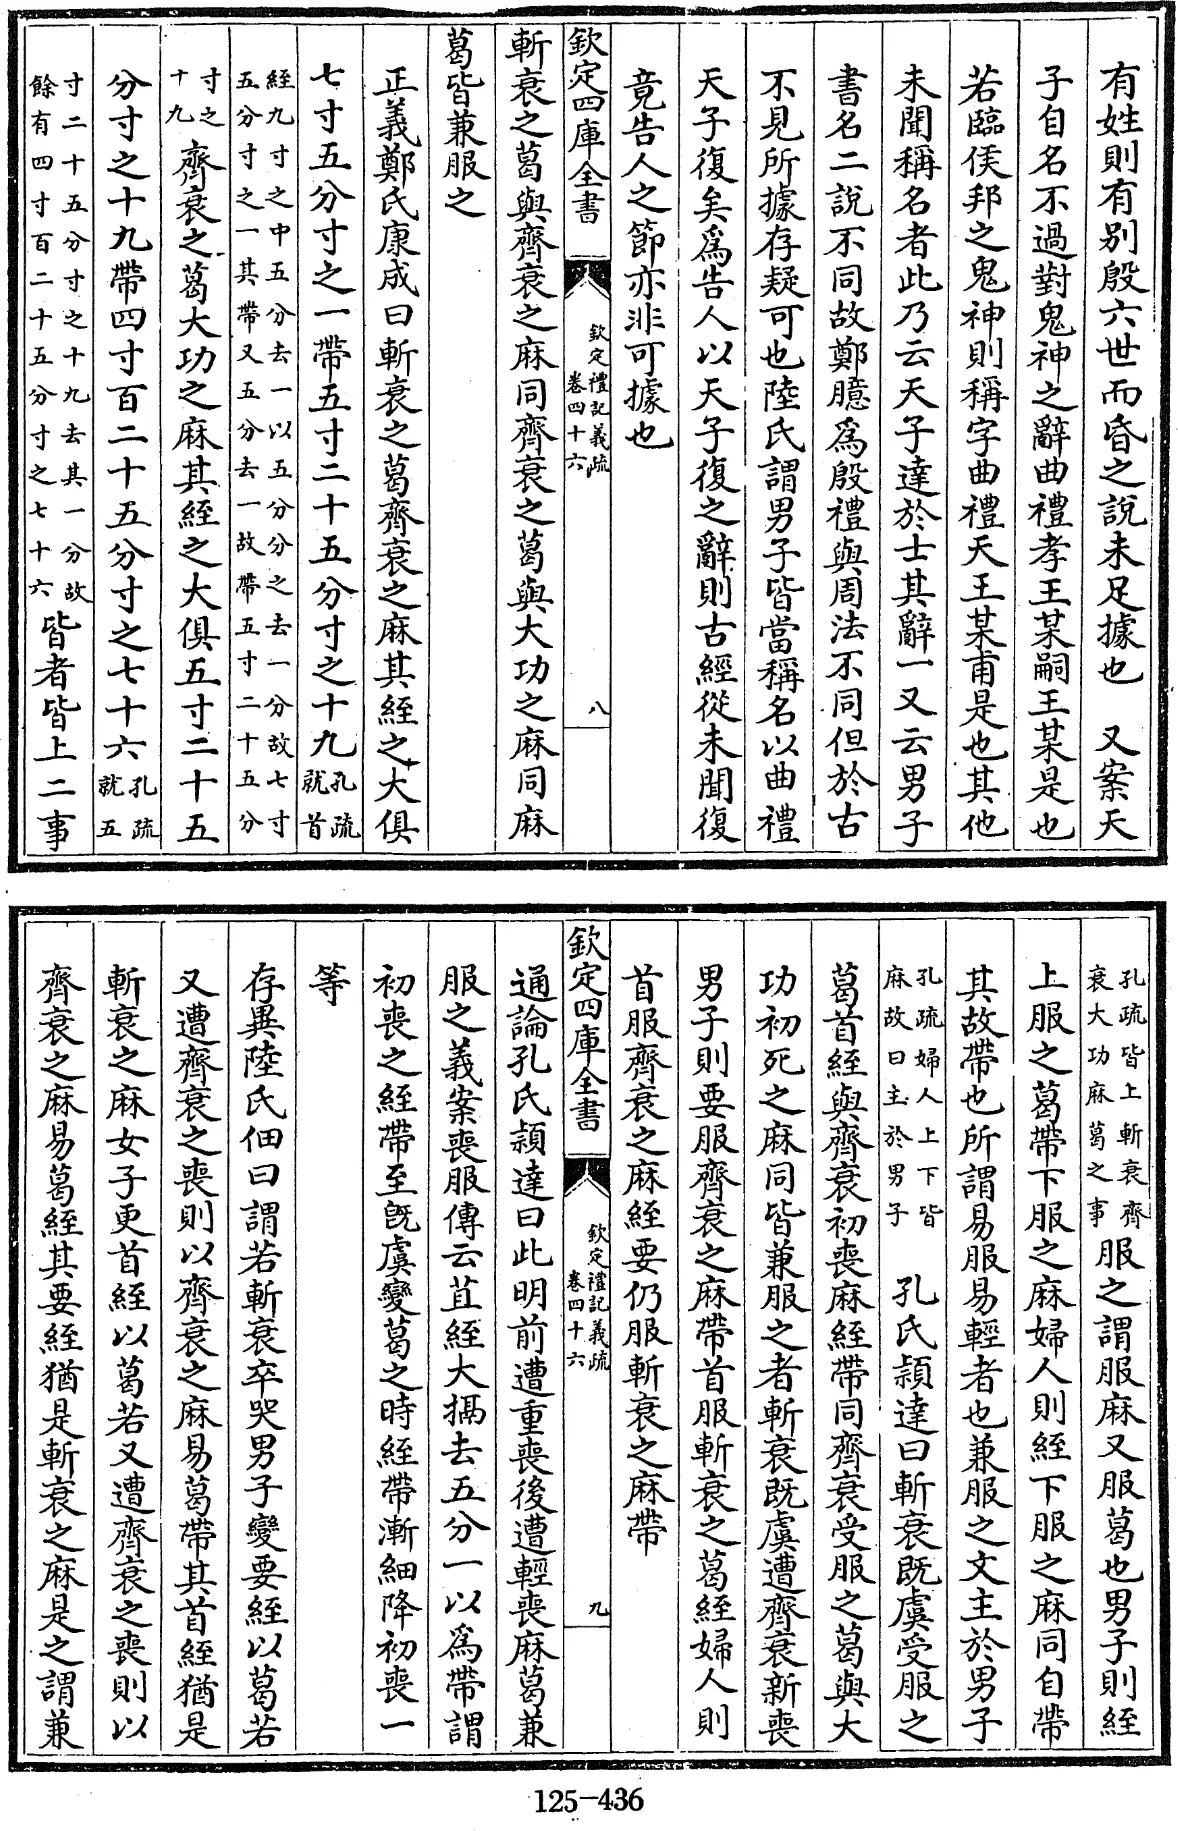 有姓則有別殷六世而昏之說未足據也　又案天
子自名不過對鬼神之辭曲禮孝王某嗣王某是也
若臨侯邦之鬼神則稱字曲禮天王某甫是也其他
未聞稱名者此乃云天子達於士其辭一又云男子
書名二說不同故鄭臆為殷禮與周法不同但於古
不見所據存疑可也陸氏謂男子皆當稱名以曲禮
天子復矣為告人以天子復之辭則古經從未聞復
竟告人之節亦非可據也
欽定四庫全書
欽定禮記義疏
卷四十六
八
斬衰之葛與齊衰之麻同齊衰之葛與大功之麻同麻
葛皆兼服之
正義鄭氏康成曰斬衰之葛齊衰之麻其絰之大俱
七寸五分寸之一帶五寸二十五分寸之十九孔疏就首
絰九寸之中五分去一以五分分之去一分故七寸
五分寸之一其帶又五分去一故帶五寸二十五分
寸之十九齊衰之葛大功之麻其絰之大俱五寸二十五
分寸之十九帶四寸百二十五分寸之七十六孔疏就五
寸二十五分寸之十九去其一分故
餘有四寸百二十五分寸之七十六皆者皆上二事
孔疏皆上斬衰齊
衰大功麻葛之事服之謂服麻又服葛也男子則絰
上服之葛帶下服之麻婦人則絰下服之麻同自帶
其故帶也所謂易服易輕者也兼服之文主於男子
孔疏婦人上下皆
麻故曰主於男子　孔氏穎達曰斬衰既虞受服之
葛首絰與齊衰初喪麻絰帶同齊衰受服之葛與大
功初死之麻同皆兼服之者斬衰既虞遭齊衰新喪
男子則要服齊衰之麻帶首服斬衰之葛絰婦人則
首服齊衰之麻絰要仍服斬衰之麻帶
欽定四庫全書
欽定禮記義疏
卷四十六
九
通論孔氏穎達曰此明前遭重喪後遭輕喪麻葛兼
服之義案喪服傳云苴絰大搹去五分一以為帶謂
初喪之絰帶至既虞變葛之時絰帶漸細降初喪一
等
存異陸氏佃曰謂若斬衰卒哭男子變要絰以葛若
又遭齊衰之喪則以齊衰之麻易葛帶其首絰猶是
斬衰之麻女子更首絰以葛若又遭齊衰之喪則以
齊衰之麻易葛絰其要絰猶是斬衰之麻是之謂兼
125-436